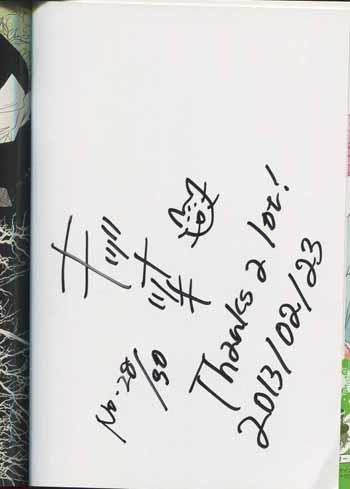 No. 28/30
Thanks a lot!
2013/02/23